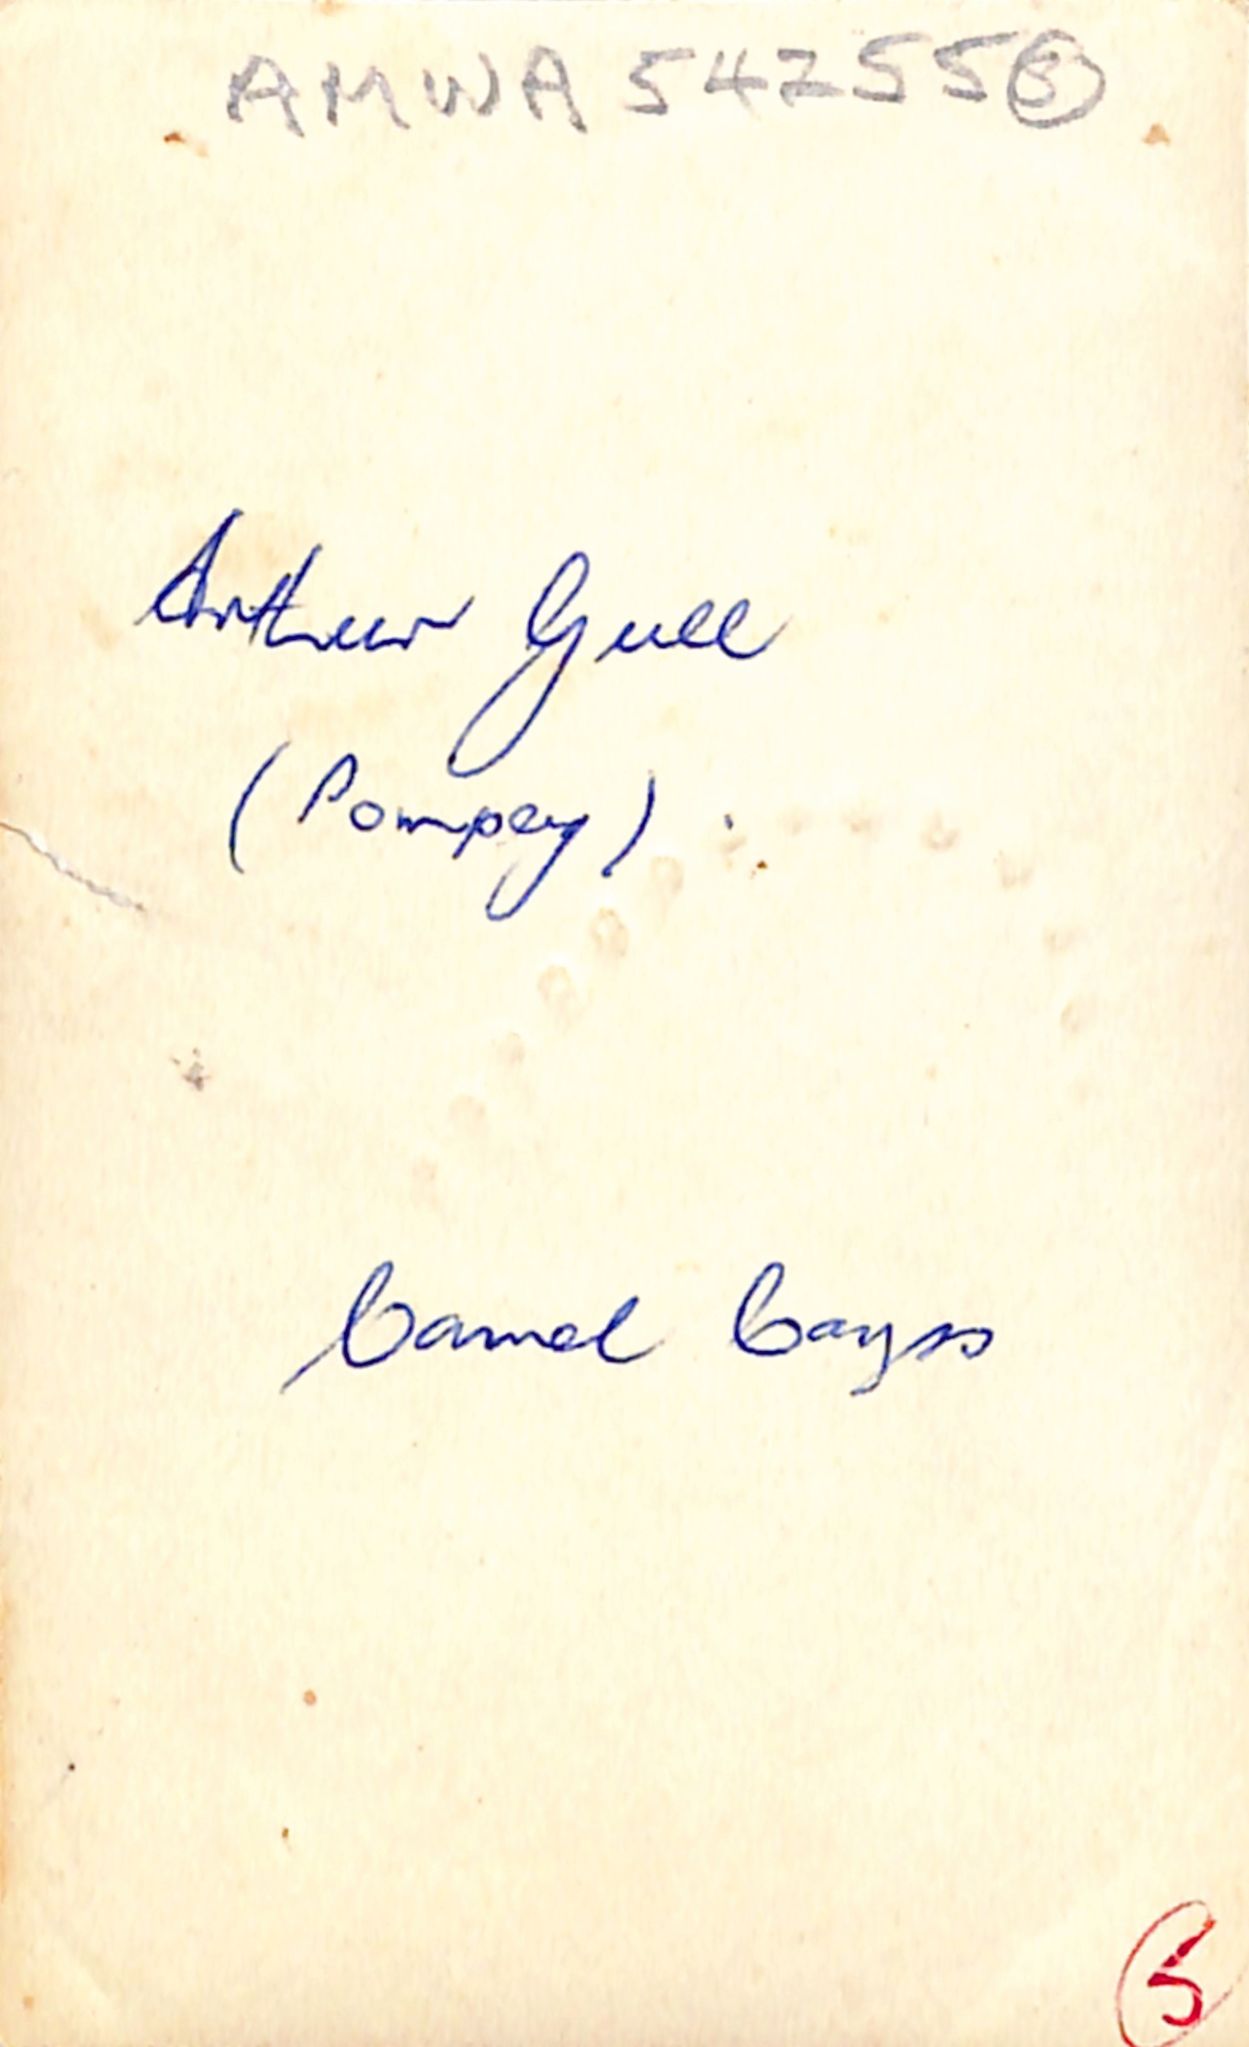 AMWA 54255 5
Arthur Gull
(Pompey)
Camel
5